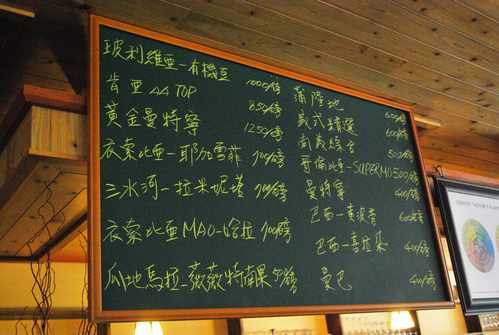 玻利維亞-有機豆 1000/磅
肯亞AA TOP 850/磅
黃金曼特寧 1250/磅
衣索比亞-耶加雪菲 700/磅
三水河-拉米妮塔 700/磅
衣索比亞MAO-哈拉 700/磅
瓜地馬拉-薇薇特南果 /磅
蒲隆地 600/磅
義式精選 600/磅
南義綜合 500/磅
哥倫比亞-SUPERMO 500/磅
曼特寧 600/磅
巴西-黃波旁 600/磅
巴西-喜拉朵 400/磅
曼巴 400/磅